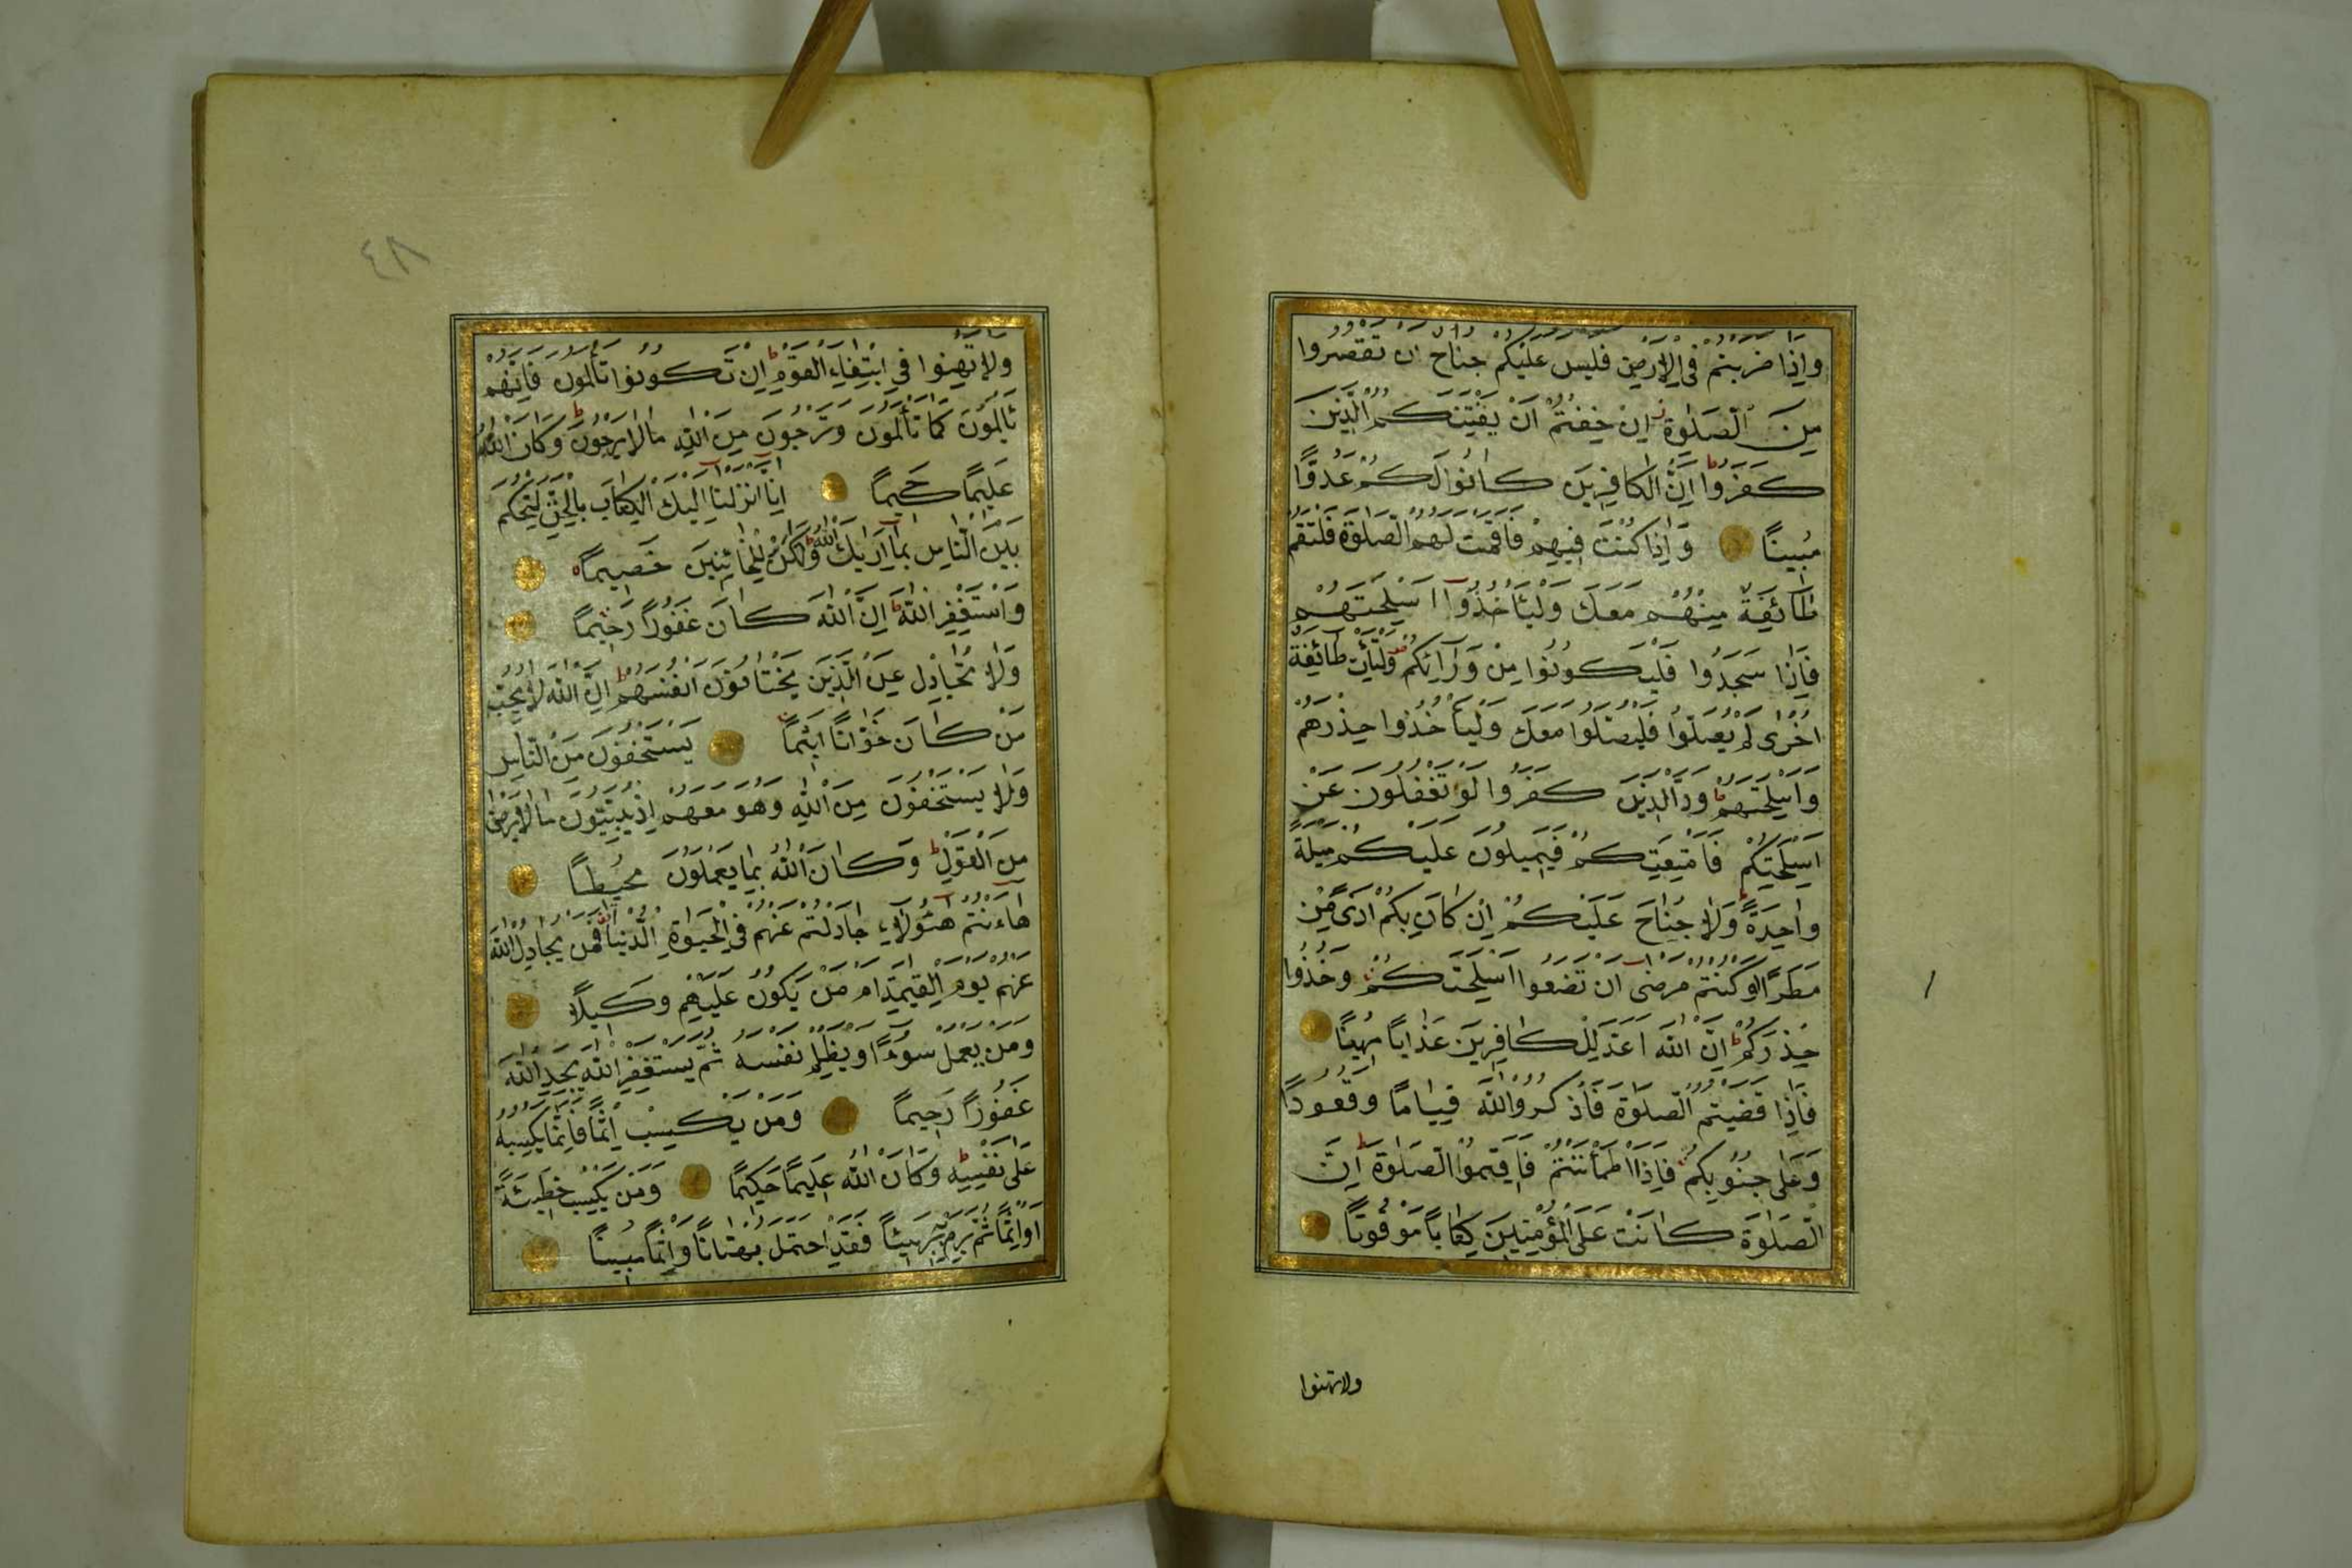 وَإِذَا ضَرَبْتُمْ فِي الْأَرْضِ فَلَيْسَ عَلَيْكُمْ جُنَاحٌ أَنْ تَقْصُرُوا
مِنَ الصَّلٰوةِ إِنْ خِفْتُمْ أَنْ يَفْتِنَكُمُ الَّذِينَ
كَفَرُوا إِنَّ الْكَافِرِينَ كَانُوا لَكُمْ عَدُوًّا
مُبِينًا وَإِذَا كُنْتَ فِيهِمْ فَأَقَمْتَ لَهُمُ الصَّلٰوةَ فَلْتَقُمْ
طَائِفَةٌ مِنْهُمْ مَعَكَ وَلْيَأْخُذُوا أَسْلِحَتَهُمْ
فَإِذَا سَجَدُوا فَلْيَكُونُوا مِنْ وَرَائِكُمْ وَلْتَأْتِ طَائِفَةٌ
أُخْرٰى لَمْ يُصَلُّوا فَلْيُصَلُّوا مَعَكَ وَلْيَأْخُذُوا حِذْرَهُمْ
وَأَسْلِحَتَهُمْ وَدَّ الَّذِينَ كَفَرُوا لَوْ تَغْفُلُونَ عَنْ
أَسْلِحَتِكُمْ فَأَمْتِعَتِكُمْ فَيَمِيلُونَ عَلَيْكُمْ مَيْلَةً
وَاحِدَةً وَلَا جُنَاحَ عَلَيْكُمْ إِنْ كَانَ بِكُمْ أَذًى مِنْ
مَطَرٍ أَوْ كُنْتُمْ مَرْضٰى أَنْ تَضَعُوا أَسْلِحَتَكُمْ وَخُذُوا
حِذْرَكُمْ إِنَّ اللّٰهَ أَعَدَّ لِلْكَافِرِينَ عَذَابًا مُهِينًا
فَإِذَا قَضَيْتُمُ الصَّلٰوةَ فَاذْكُرُوا اللّٰهَ قِيَامًا وَقُعُودًا
وَعَلٰى جُنُوبِكُمْ فَإِذَا اطْمَأْنَنْتُمْ فَأَقِيمُوا الصَّلٰوةَ إِنَّ
الصَّلٰوةَ كَانَتْ عَلَى الْمُؤْمِنِينَ كِتَابًا مَوْقُوتًا
ولا تهنوا
٤٨
وَلَا تَهِنُوا فِي ابْتِغَاءِ الْقَوْمِ إِنْ تَكُونُوا تَأْلَمُونَ فَإِنَّهُمْ
يَأْلَمُونَ كَمَا تَأْلَمُونَ وَتَرْجُونَ مِنَ اللّٰهِ مَا لَا يَرْجُونَ وَكَانَ اللّٰهُ
عَلِيمًا حَكِيمًا إِنَّا أَنْزَلْنَا إِلَيْكَ الْكِتَابَ بِالْحَقِّ لِتَحْكُمَ
بَيْنَ النَّاسِ بِمَا أَرٰيكَ اللّٰهُ وَلَا تَكُنْ لِلْخَائِنِينَ خَصِيمًا
وَاسْتَغْفِرِ اللّٰهَ إِنَّ اللّٰهَ كَانَ غَفُورًا رَحِيمًا
وَلَا تُجَادِلْ عَنِ الَّذِينَ يَخْتَانُونَ أَنْفُسَهُمْ إِنَّ اللّٰهَ لَا يُحِبُّ
مَنْ كَانَ خَوَّانًا أَثِيمًا يَسْتَخْفُونَ مِنَ النَّاسِ
وَلَا يَسْتَخْفُونَ مِنَ اللّٰهِ وَهُوَ مَعَهُمْ إِذْ يُبَيِّتُونَ مَا لَا يَرْضٰى
مِنَ الْقَوْلِ وَكَانَ اللّٰهُ بِمَا يَعْمَلُونَ مُحِيطًا
هَا أَنْتُمْ هٰؤُلَاءِ جَادَلْتُمْ عَنْهُمْ فِي الْحَيٰوةِ الدُّنْيَا فَمَنْ يُجَادِلُ اللّٰهَ
عَنْهُمْ يَوْمَ الْقِيٰمَةِ أَمْ مَنْ يَكُونُ عَلَيْهِمْ وَكِيلًا
وَمَنْ يَعْمَلْ سُوءًا أَوْ يَظْلِمْ نَفْسَهُ ثُمَّ يَسْتَغْفِرِ اللّٰهَ يَجِدِ اللّٰهَ
غَفُورًا رَحِيمًا وَمَنْ يَكْسِبْ إِثْمًا فَإِنَّمَا يَكْسِبُهُ
عَلٰى نَفْسِهِ وَكَانَ اللّٰهُ عَلِيمًا حَكِيمًا وَمَنْ يَكْسِبْ خَطِيئَةً
أَوْ إِثْمًا ثُمَّ يَرْمِ بِهِ بَرِيئًا فَقَدِ احْتَمَلَ بُهْتَانًا وَإِثْمًا مُبِينًا